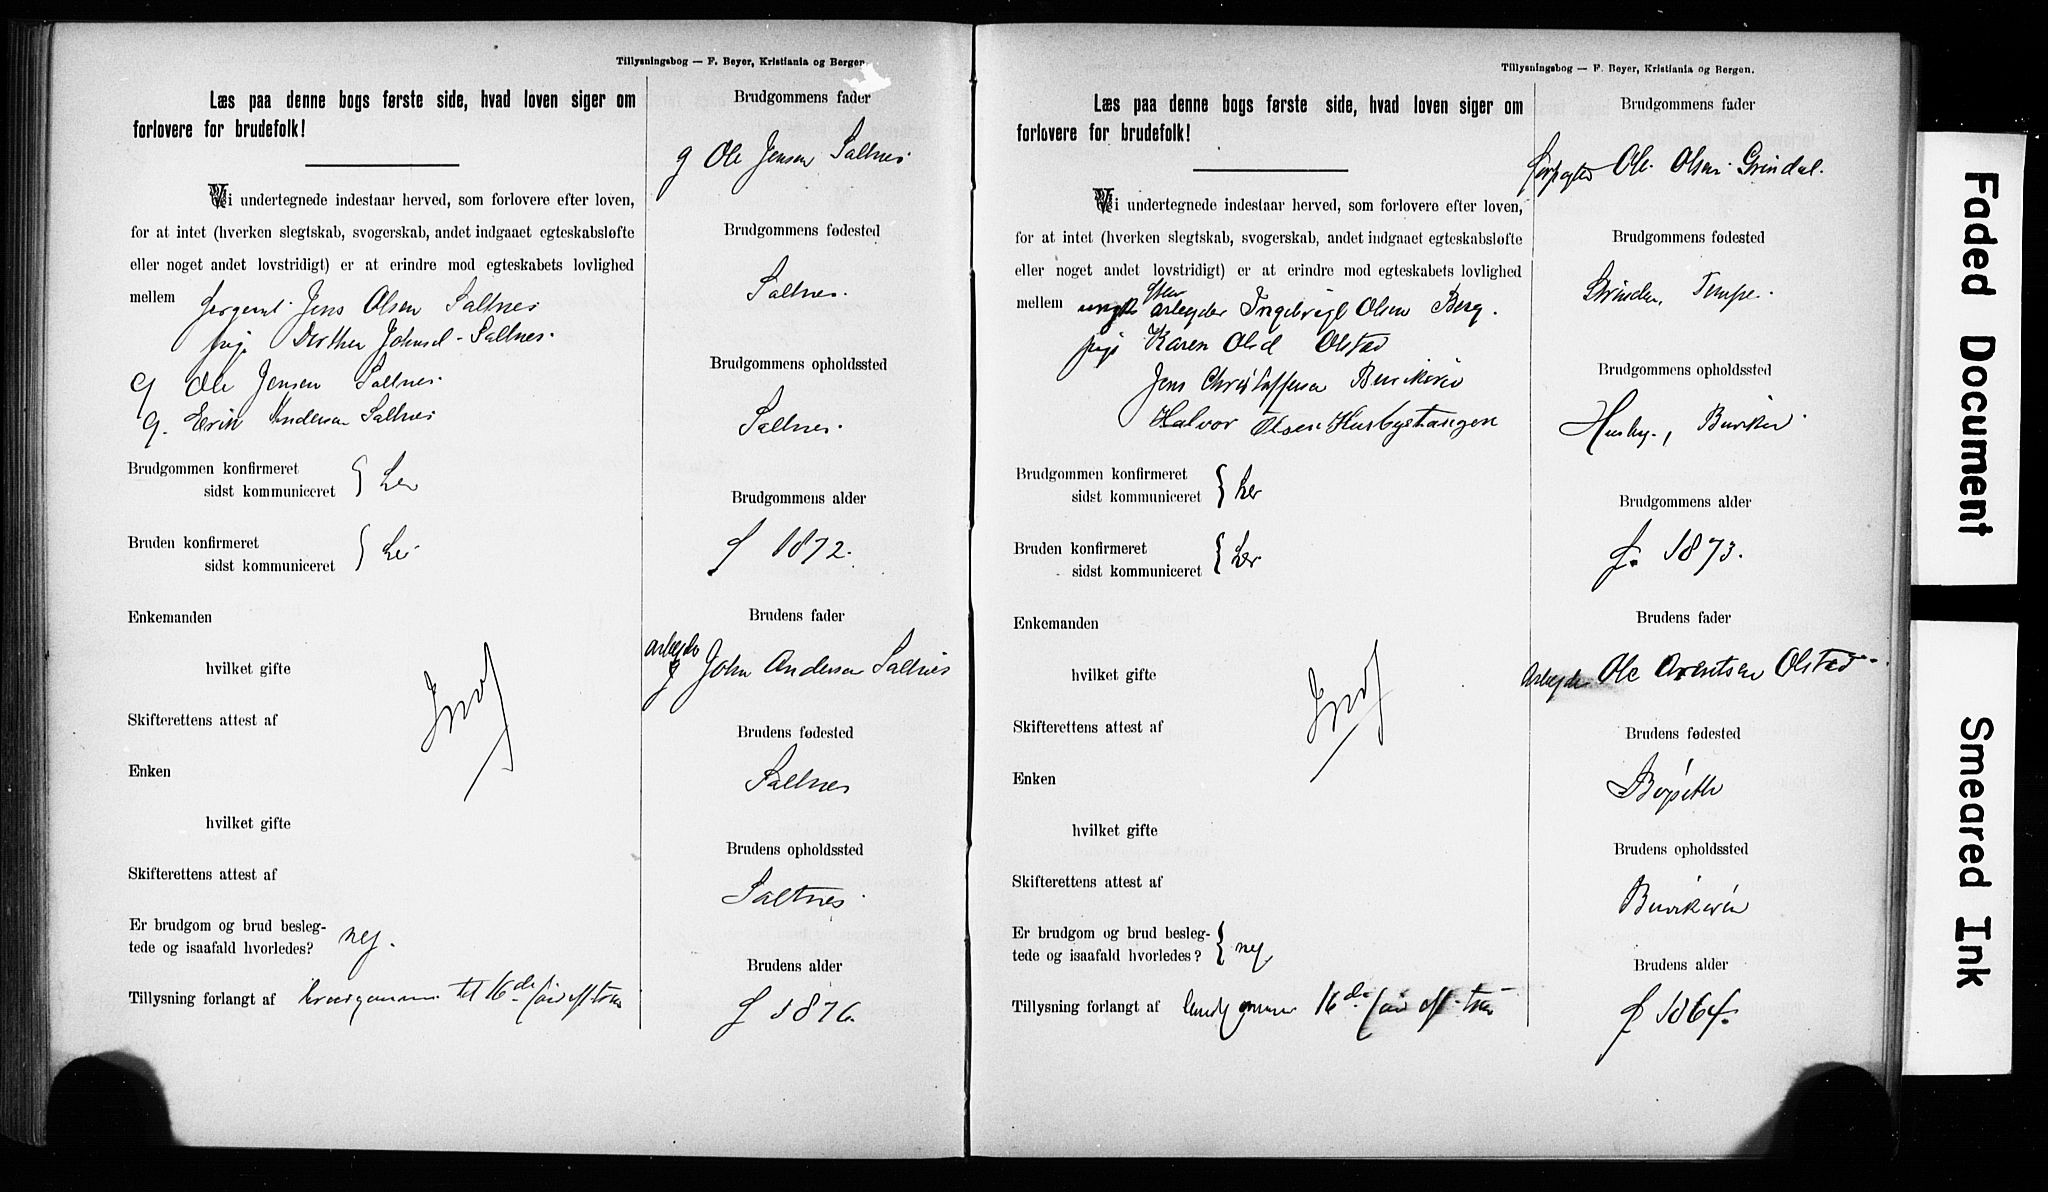 Tillysningsbog — F. Beyer, Kristiania og Bergen.
Læs paa denne bogs første side, hvad loven siger om
forlovere for brudefolk!
Vi undertegnede indestaar herved, som forlovere efter loven,
for at intet (hverken slegtskab, svogerskab, andet indgaaet egteskabsløfte
eller noget andet lovstridigt) er at erindre mod egteskabets lovlighed
mellem Sergeant Jens Olsen Saltnes
pige Dorthea Johnsd. Saltnes.
g Ole Jensen Saltnes.
g. Erik Anderson Saltnes
Brudgommen konfirmeret
sidst kommuniceret } Ler
Bruden konfirmeret
sidst kommuniceret } Ler
Enkemanden
hvilket gifte
Skifterettens attest af
Enken
hvilket gifte
Skifterettens attest af
Er brudgom og brud beslegtede
og isaafald hvorledes? nej.
Tillysning forlangt af brudgommen til 16de
Brudgommens fader
g Ole Jensen Saltnes
Brudgommens fødested
Saltnes.
Brudgommens opholdssted
Saltnes.
Brudgommens alder
f 1872.
Brudens fader
arbeyder
g John Andersen Saltnes
Brudens fødested
Saltnes
Brudens opholdssted
Saltnes.
Brudens alder
f 1876.
Tillysningsbog — F. Beyer, Kristiania og Bergen.
Læs paa denne bogs første side, hvad loven siger om
forlovere for brudefolk!
Vi undertegnede indestaar herved, som forlovere efter loven,
for at intet (hverken slegtskab, svogerskab, andet indgaaet egteskabsløfte
eller noget andet lovstridigt) er at erindre mod egteskabets lovlighed
mellem arbeyder Ingebrigt Olsen Berg.
pige Karen Olsd Olstad
Jens Christoffersen Buvikøren
Halvor Olsen Husbystangen
Brudgommen konfirmeret
sidst kommuniceret } Ler
Bruden konfirmeret
sidst kommuniceret } Ler
Enkemanden
hvilket gifte
Skifterettens attest af
Enken
hvilket gifte
Skifterettens attest af
Er brudgom og brud beslegtede
og isaafald hvorledes? } nej
Tillysning forlangt af brudgommen 16de
Brudgommens fader
forpagter Ole Olsen Grindal.
Brudgommens fødested
Strinden, Tempe.
Brudgommens opholdssted
Husby, Buviken
Brudgommens alder
f. 1873.
Brudens fader
Arbeyder Ole Arentsen Olstad
Brudens fødested
Brudens opholdssted
Buvikøren
Brudens alder
f 1864.
Faded Document
Smeared Ink